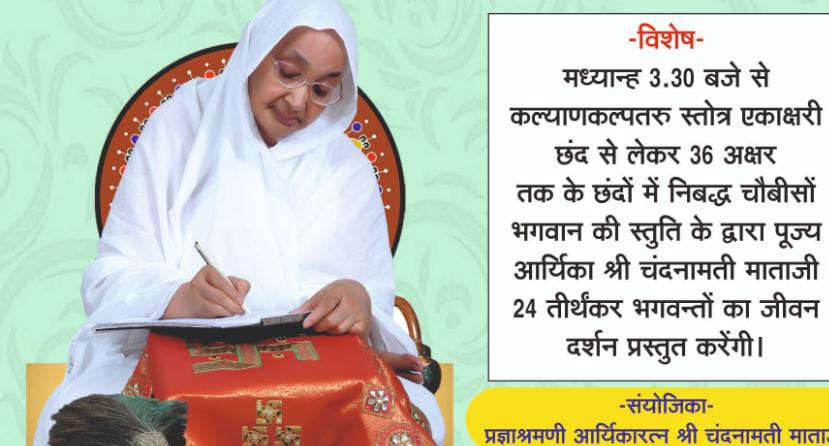 -विशेष-
मध्यान्ह 3.30 बजे से
कल्याणकल्पतरु स्तोत्र एकाक्षरी
छंद से लेकर 36 अक्षर
तक के छंदों में निबद्ध चौबीसों
भगवान की स्तुति के द्वारा पूज्य
आर्यिका श्री चंदनामती माताजी
24 तीर्थंकर भगवन्तों का जीवन
दर्शन प्रस्तुत करेंगी।
-संयोजिका-
प्रज्ञाश्रमणी आर्यिकारत्न श्री चंदनामती